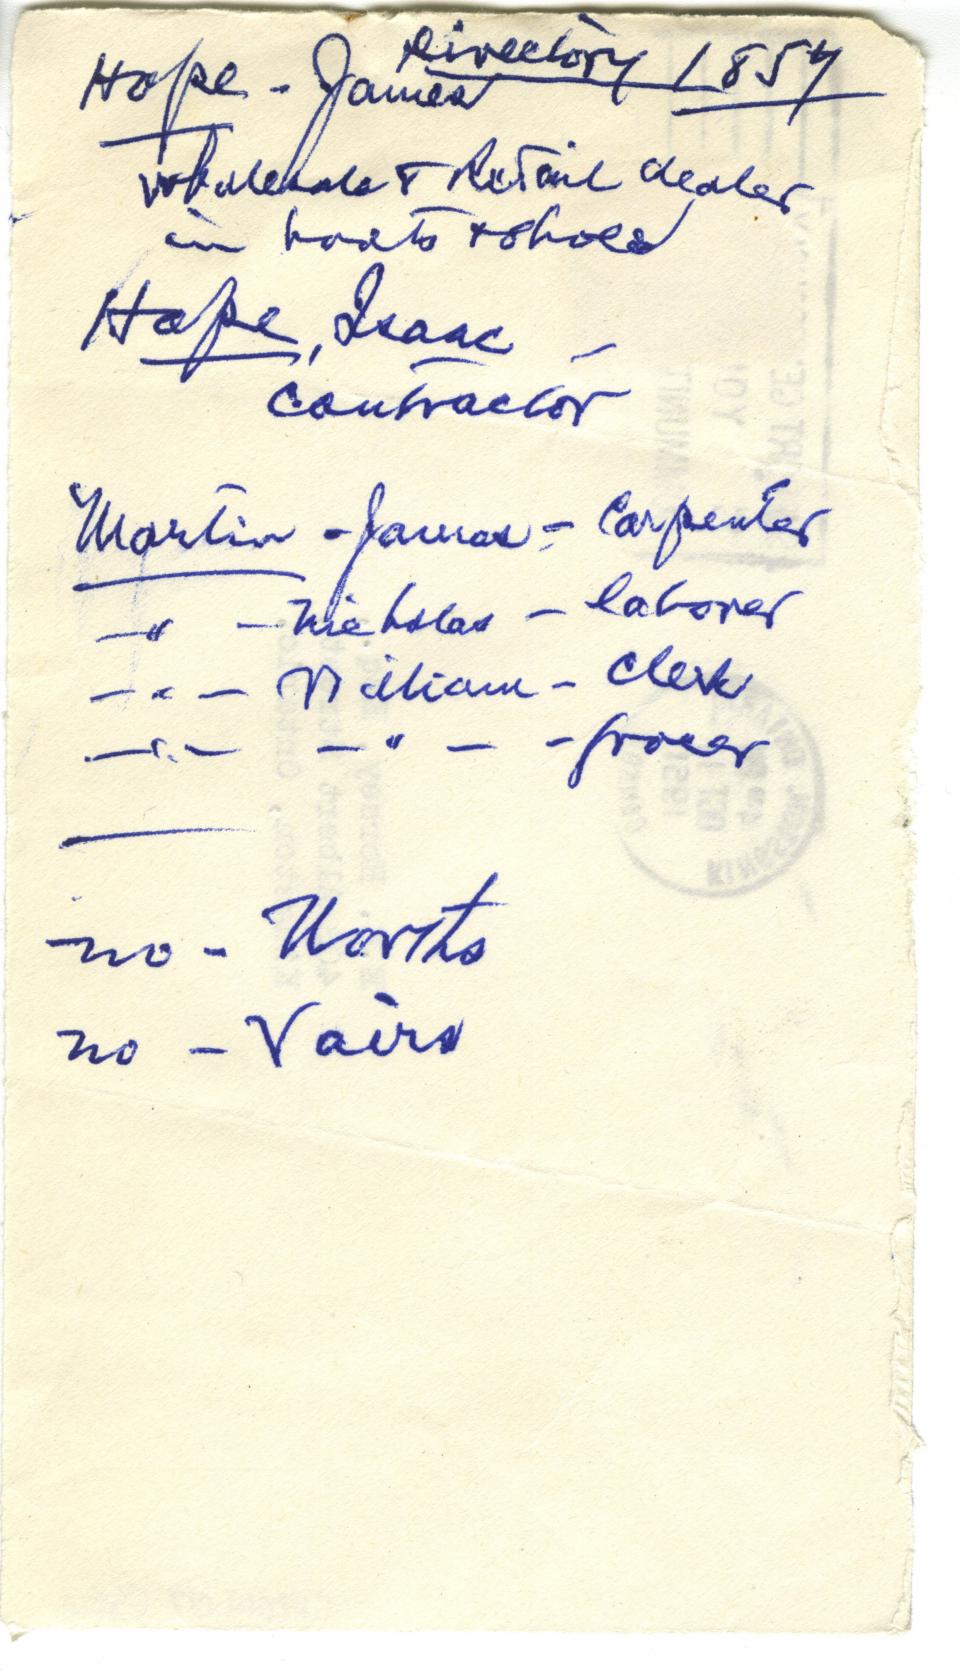 Directory 1857
Hope - James
wholesale & Retail dealer
in boots & shoes
Hope, Isaac
Contractor
Martin - James - Carpenter
—"— Nicholas - laborer
—"— William - Clerk
—"— —"— - grocer
no - Norths
no - Vairs